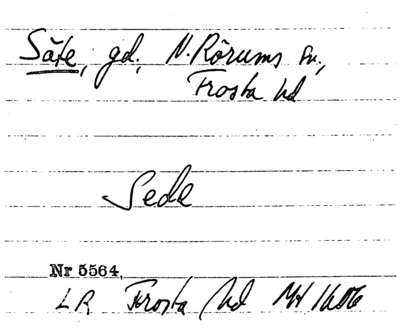 Säte, gd, N. Rörums sn.,
Frosta hd
Sede
Nr 5564.
LR Frosta hd